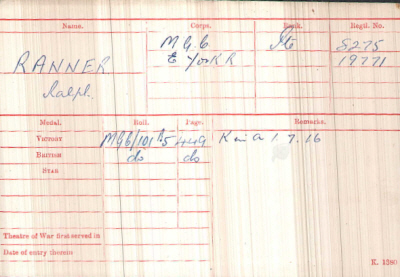 Name. Corps. Rank. Regtl. No.
RANNER M.G.C. Pte 8275
Ralph. E York R 19771
Medal. Roll. Page. Remarks.
VICTORY MGC/101 B5 449 K in A 1.7.16
BRITISH do do
STAR
Theatre of War first served in
Date of entry therein
K. 1380